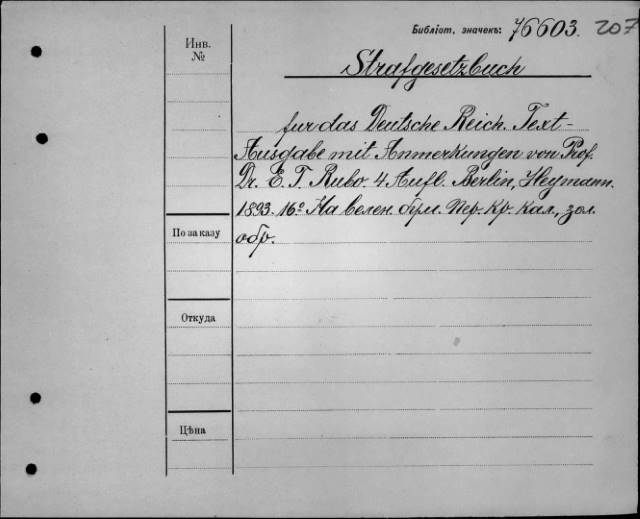 Библіот. значекъ: 76603. 207
Инв.
№
Strafgesetzbuch
fur das Deutsche Reich. Text-
Ausgabe mit Anmerkungen von Prof.
Dr. E. T. Rubo. 4 Aufl. Berlin, Heymann.
1893. 16º. На велен. бум. Пер. Кр. кал., зол.
обр.
По заказу
Откуда
Цѣна